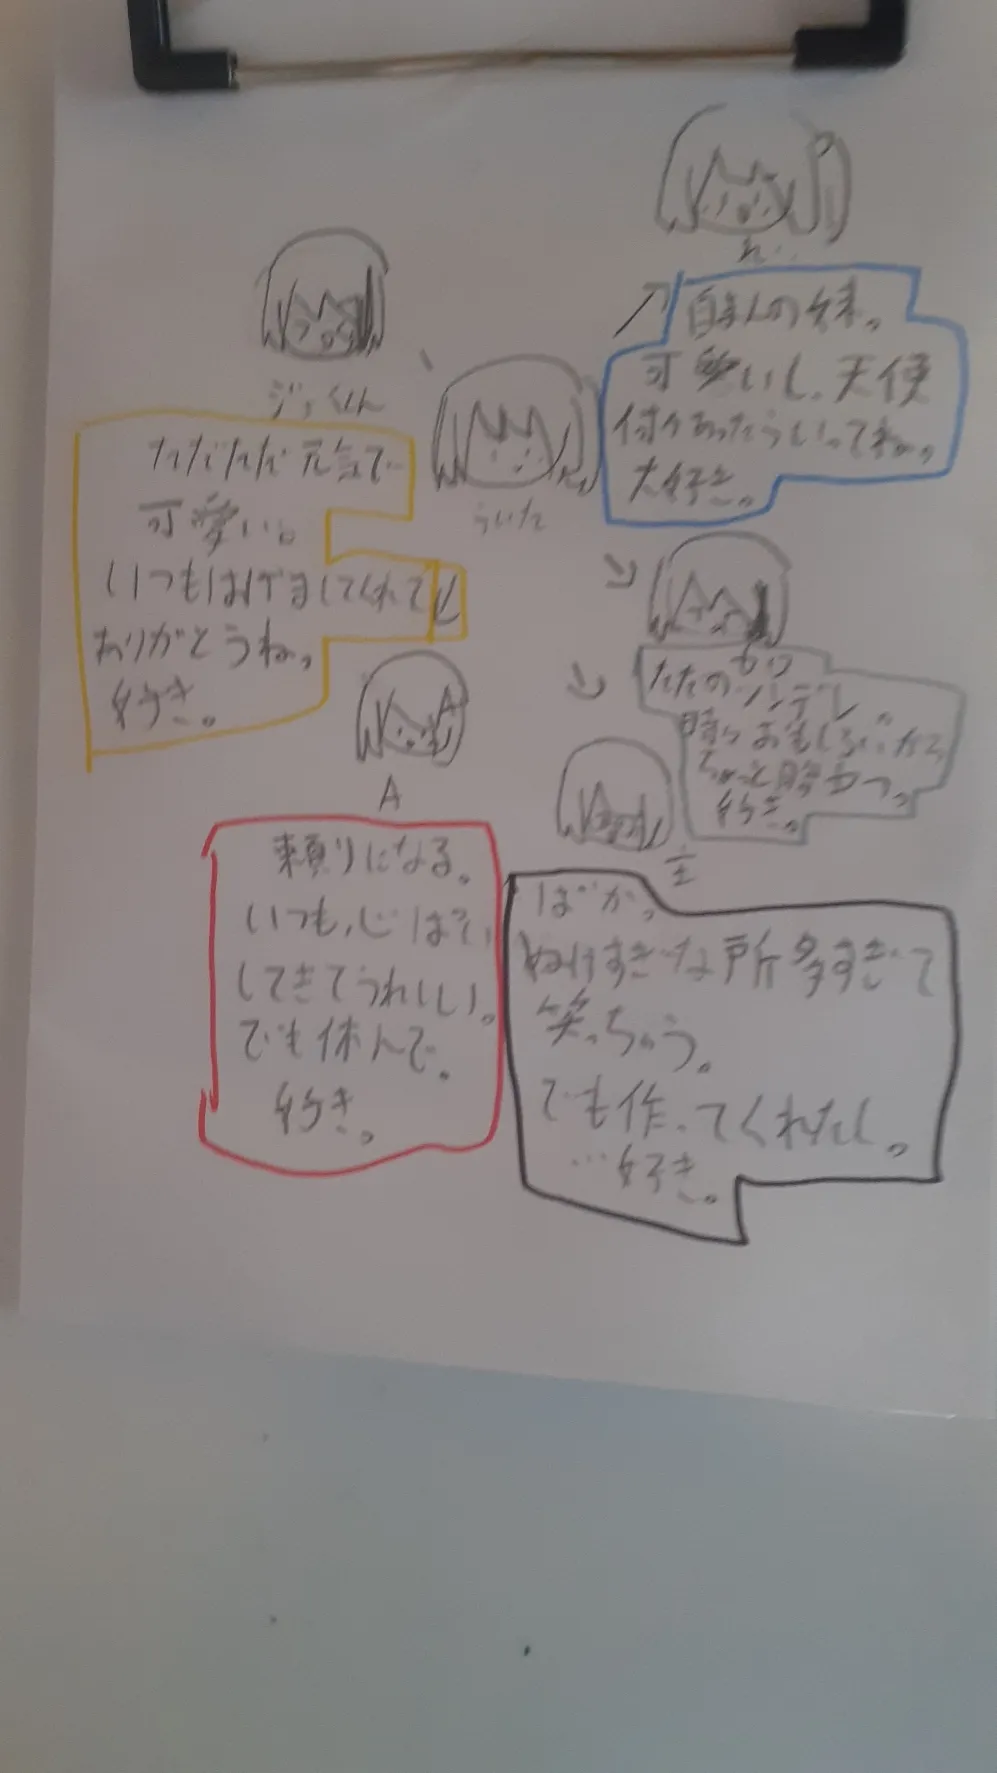 ジャくん
ただただ元気で
可愛い。
いつもはげましてくれて
ありがとうね。
好き。
ういた
自まんの妹。
可愛いし、天使
付きあったらいってね。
大好き。
ただの
ツンデレ。
時々おもしろいから
ちょっと腹立つ。
好き。
A
頼りになる。
いつも心ぱい
してきてうれしい。
でも休んで。
好き。
主
ばか。
ぬけすぎな所多すぎて
笑っちゃう。
でも作ってくれたし。
…好き。